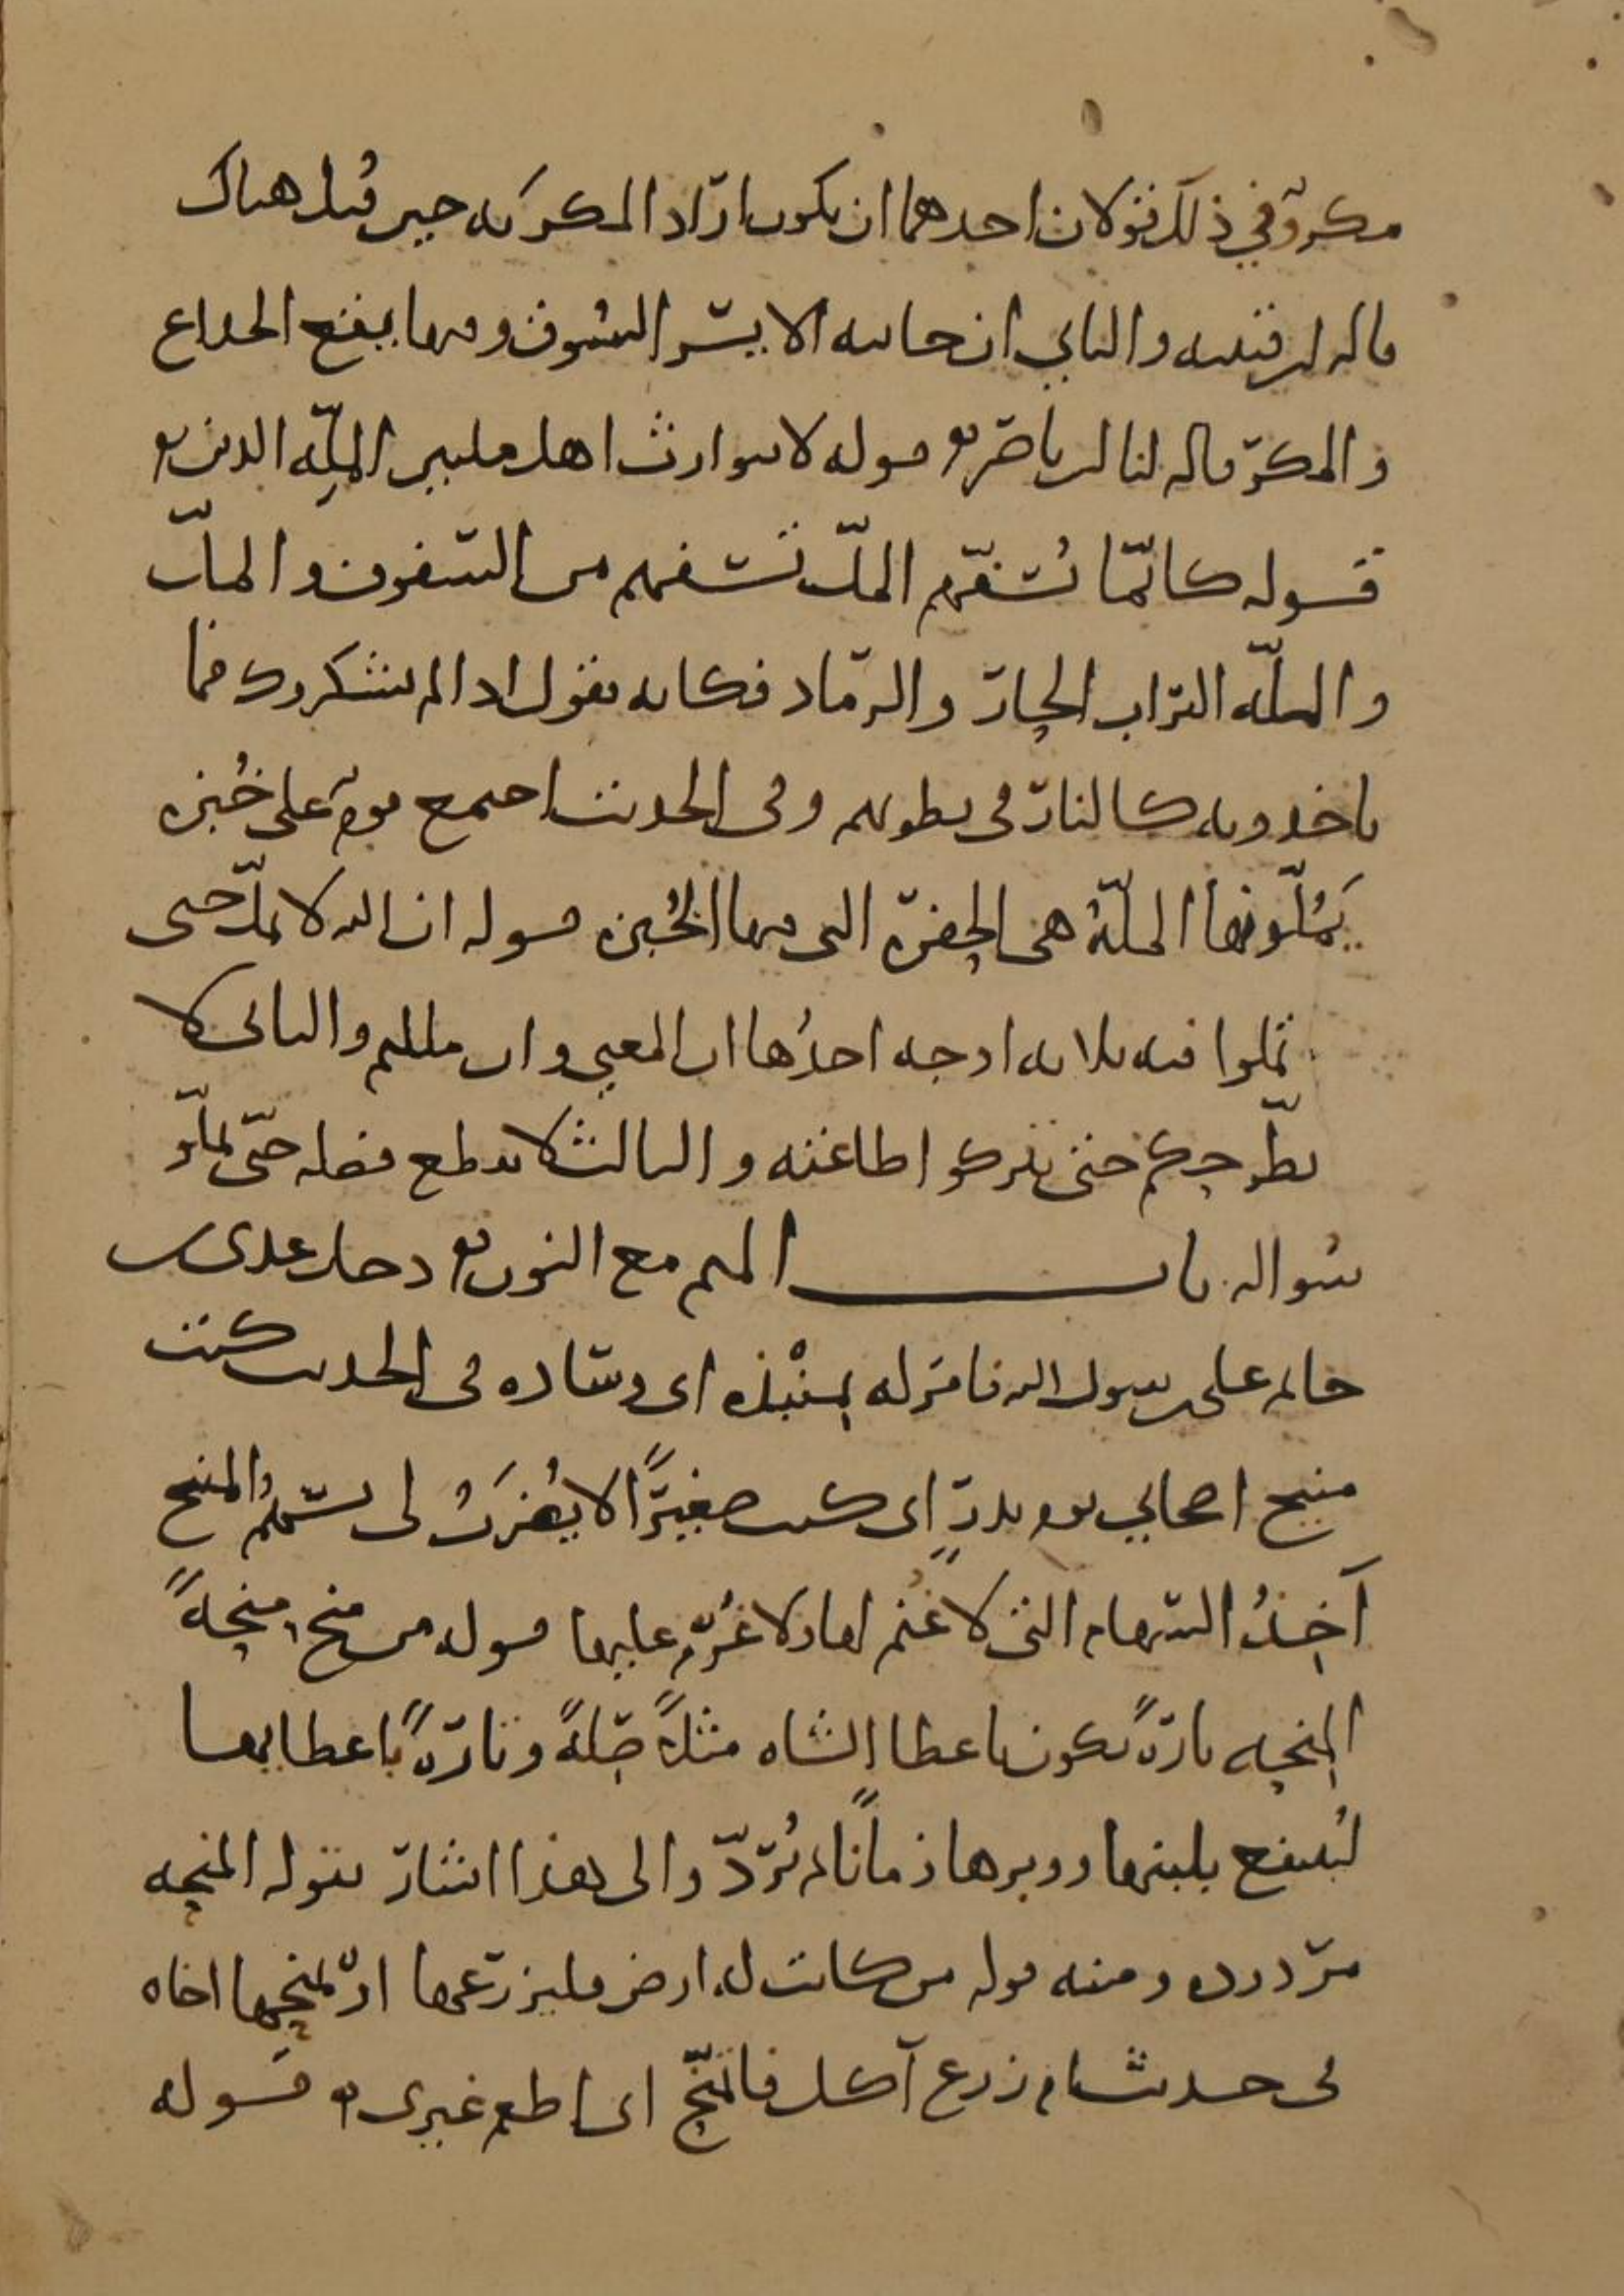 مكر وفي ذلك قولان احدهما ان يكون اراد المكر به حين قيل هناك
قاله ابن قتيبه والثاني ان جانبه الايسر السوق وفيها يقع الخداع
والمكر قاله لنا ابن ناصر قوله لا يتوارث اهل ملتين الملّه الدين
قوله كانّما تُسفّهم الملّ تسفهم من السفوف والملّ
والملّه التراب الحارّ والرماد فكانه يقول اذا لم يشكروك فما
ياخذونه كالنار في بطونهم وفي الحديث اجتمع قوم على خُبزه
يَمُلّونها الملّةُ هي الحفرة التي فيها الخُبزه قوله ان الله لا يملّ حتى
تملوا فيه ثلاثه اوجه احدُها ان المعنى وان مللتم والثاني لا
يطّرحكم حتى تتركوا طاعته والثالث لا يقطع فضله حتّى تملّو
سواله باب الميم مع النون دخل عدى بن
حاتم على رسول الله فامر له بمنْبذه اى وساده في الحديث كنت
منيح اصحابي يوم بدرٍ اى كنت صغيرًا لا يُضرَبُ لى بسهمٍ والمنيح
آخِذُ السهام التى لا غُنم لها ولا غُرم عليها قوله من منح منحةً
المنحه تارةً تكون باعطا الشاه مثلاً صِلةً وتارةً باعطايها
ليُنتفع بلبنها ووبرها زمانًا ثم تُردّ والى هذا اشار بقوله المنحه
مردوده ومنه قوله من كانت له ارض فليزرعها او يمنحها اخاه
في حديث ام زرع آكل فاتمنّح اى اطعم غيرى قوله